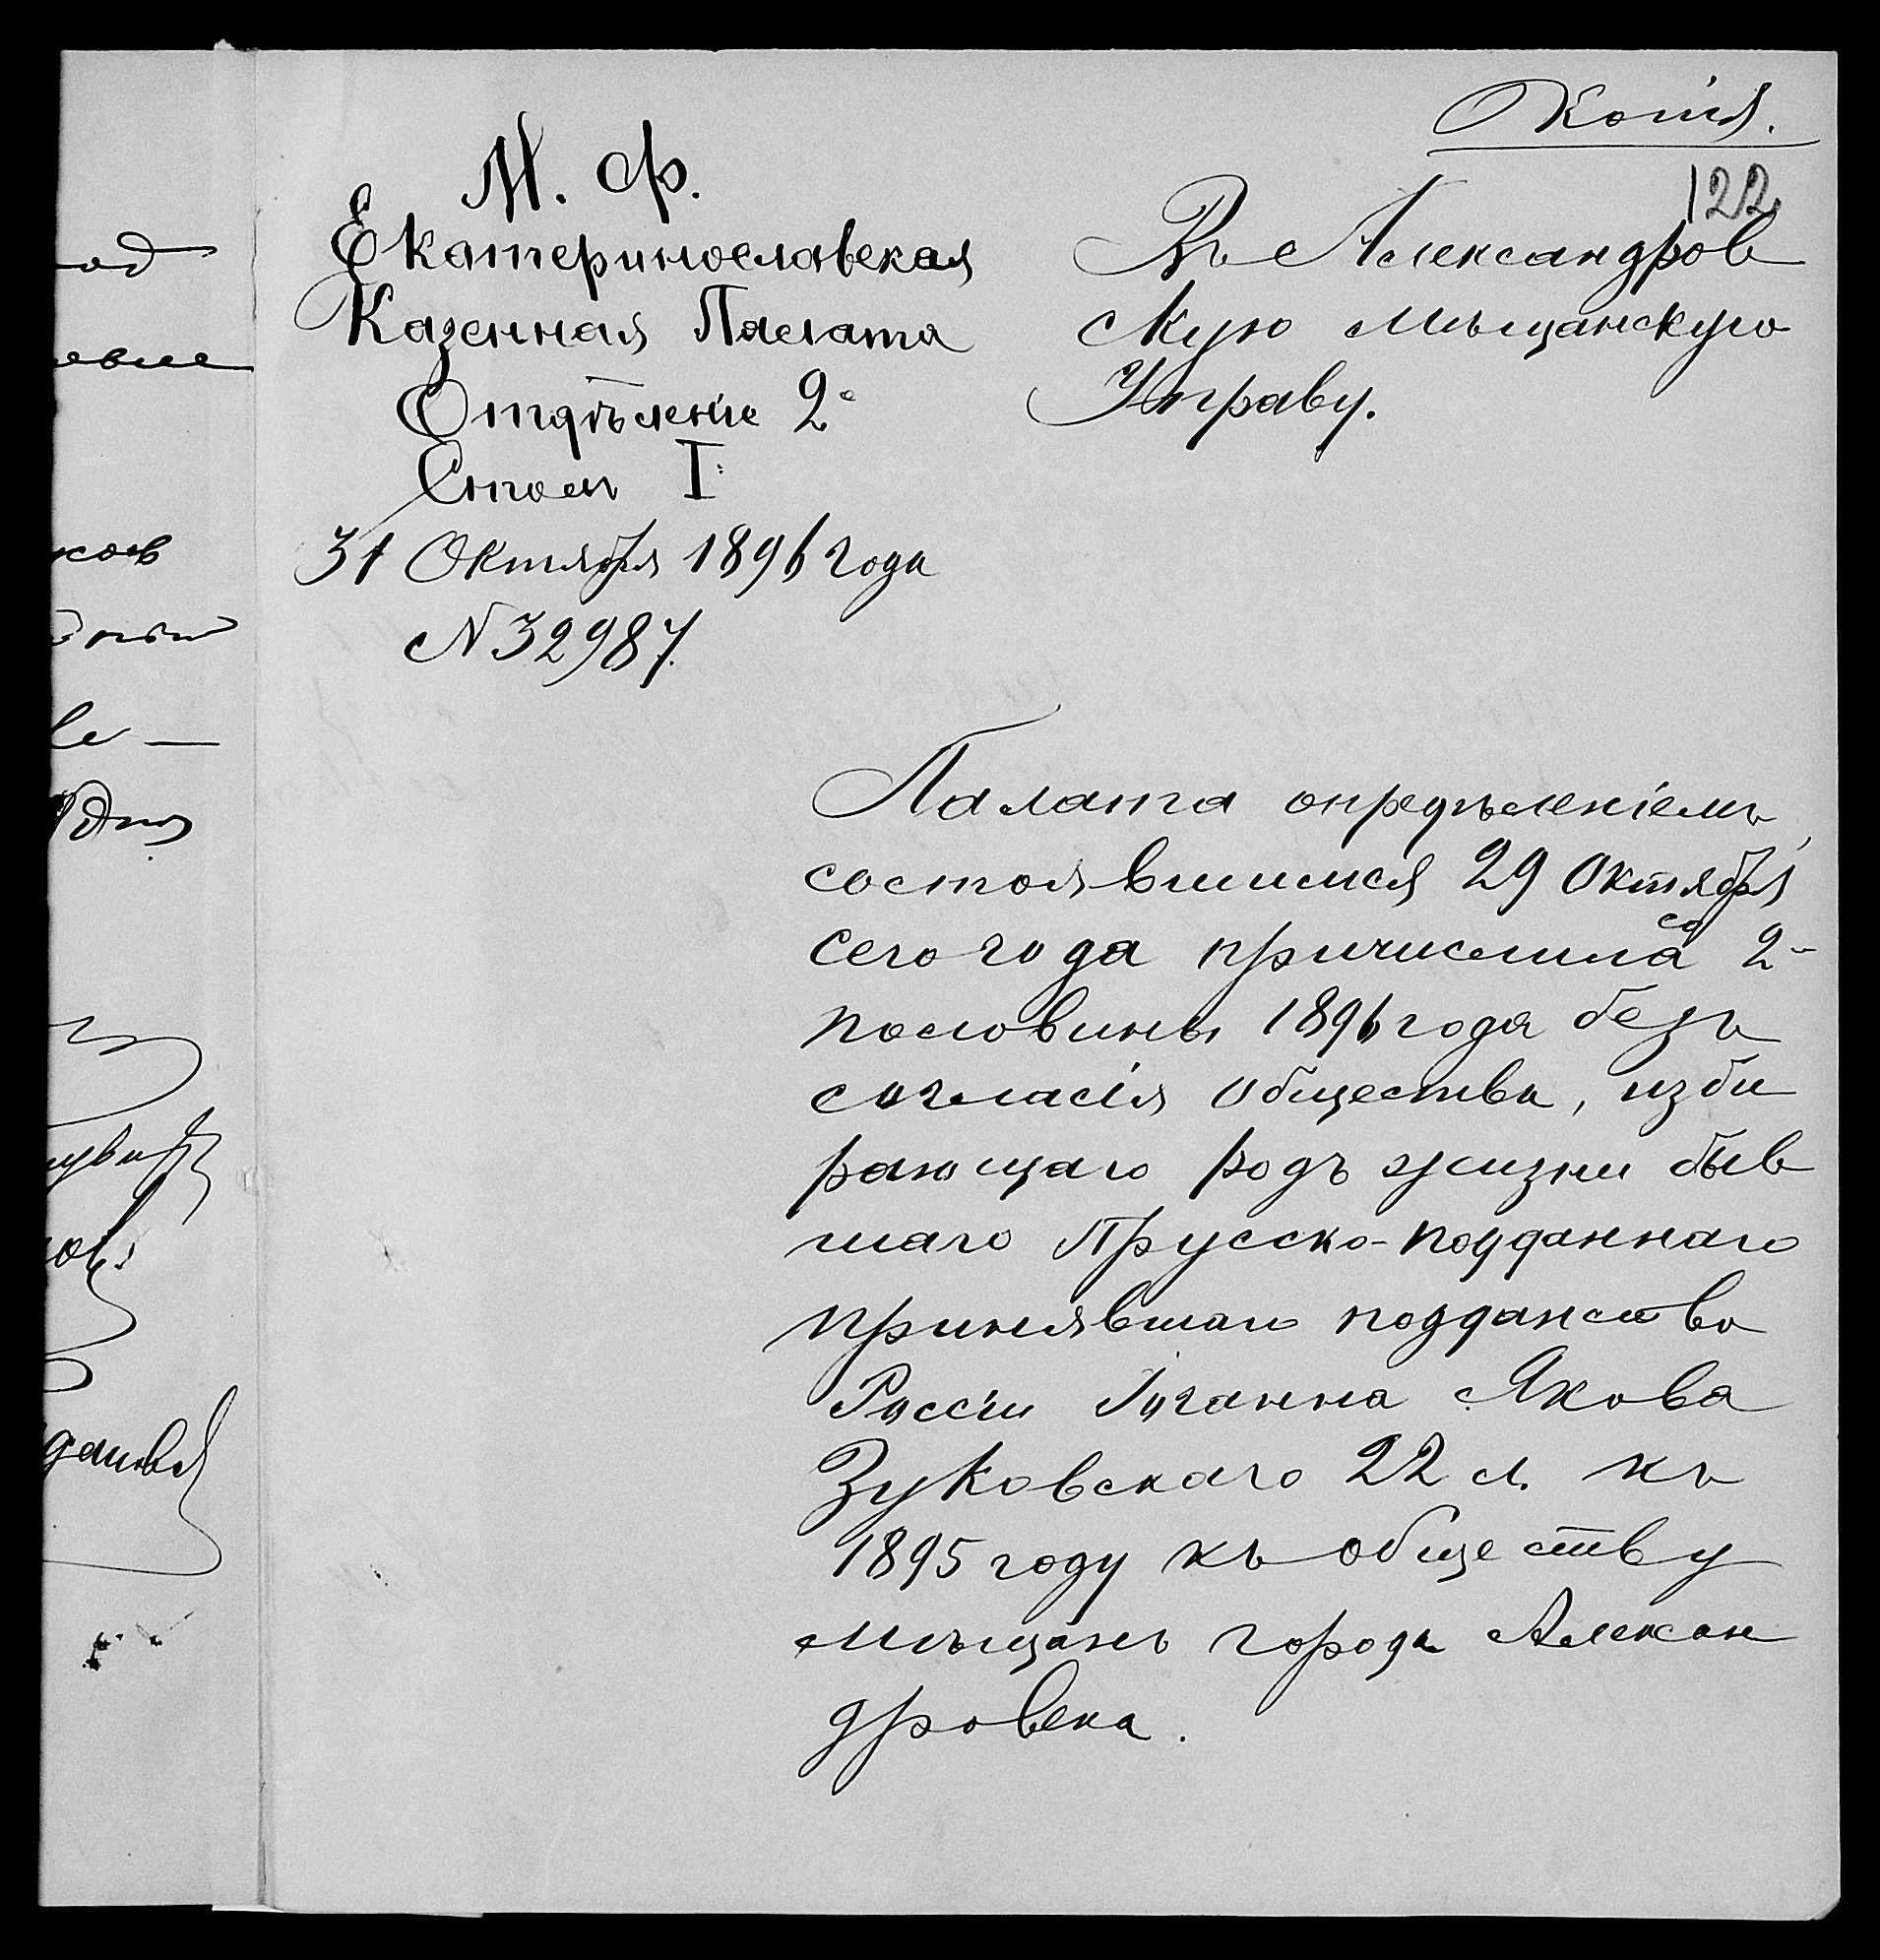 Копія.
122
М. Ф.
Екатеринославская
Казенная Палата
Отдѣленіе 2е
Столъ I
31 Октября 1896 года
N 32987.
Въ Александров
скую мѣщанскую
Управу.
Палата опредѣленіемъ,
состоявшимся 29 Октября
сего года причислила со 2й
половины 1896 года безъ
согласія общества, изби
рающаго родъ жизни быв
шаго Прусско-подданнаго
принявшаго подданство
Россіи Іоганна Якова
Зуковскаго 22 л. къ
1895 году къ обществу
мѣщанъ города Алексан
дровска.